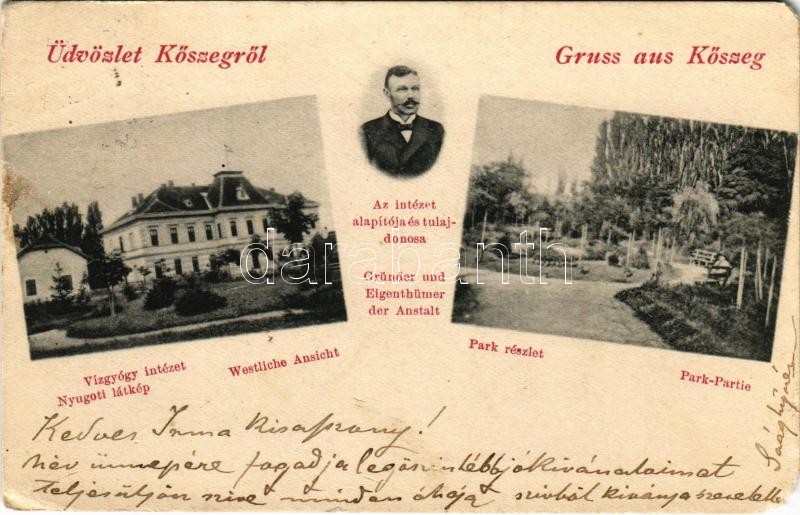 Üdvözlet Kőszegről
Gruss aus Kőszeg
Az intézet
alapítója és tulaj-
donosa
Gründer und
Eigenthümer
der Anstalt
darabanth
Vízgyógy intézet
Nyugoti látkép
Westliche Ansicht
Park részlet
Park-Partie
Kedves Irma Kisasszony!
Név ünnepére fogadja legőszintébb jókivánataimat
teljesüljön szive minden óhaja szivből kivánja szeretettel